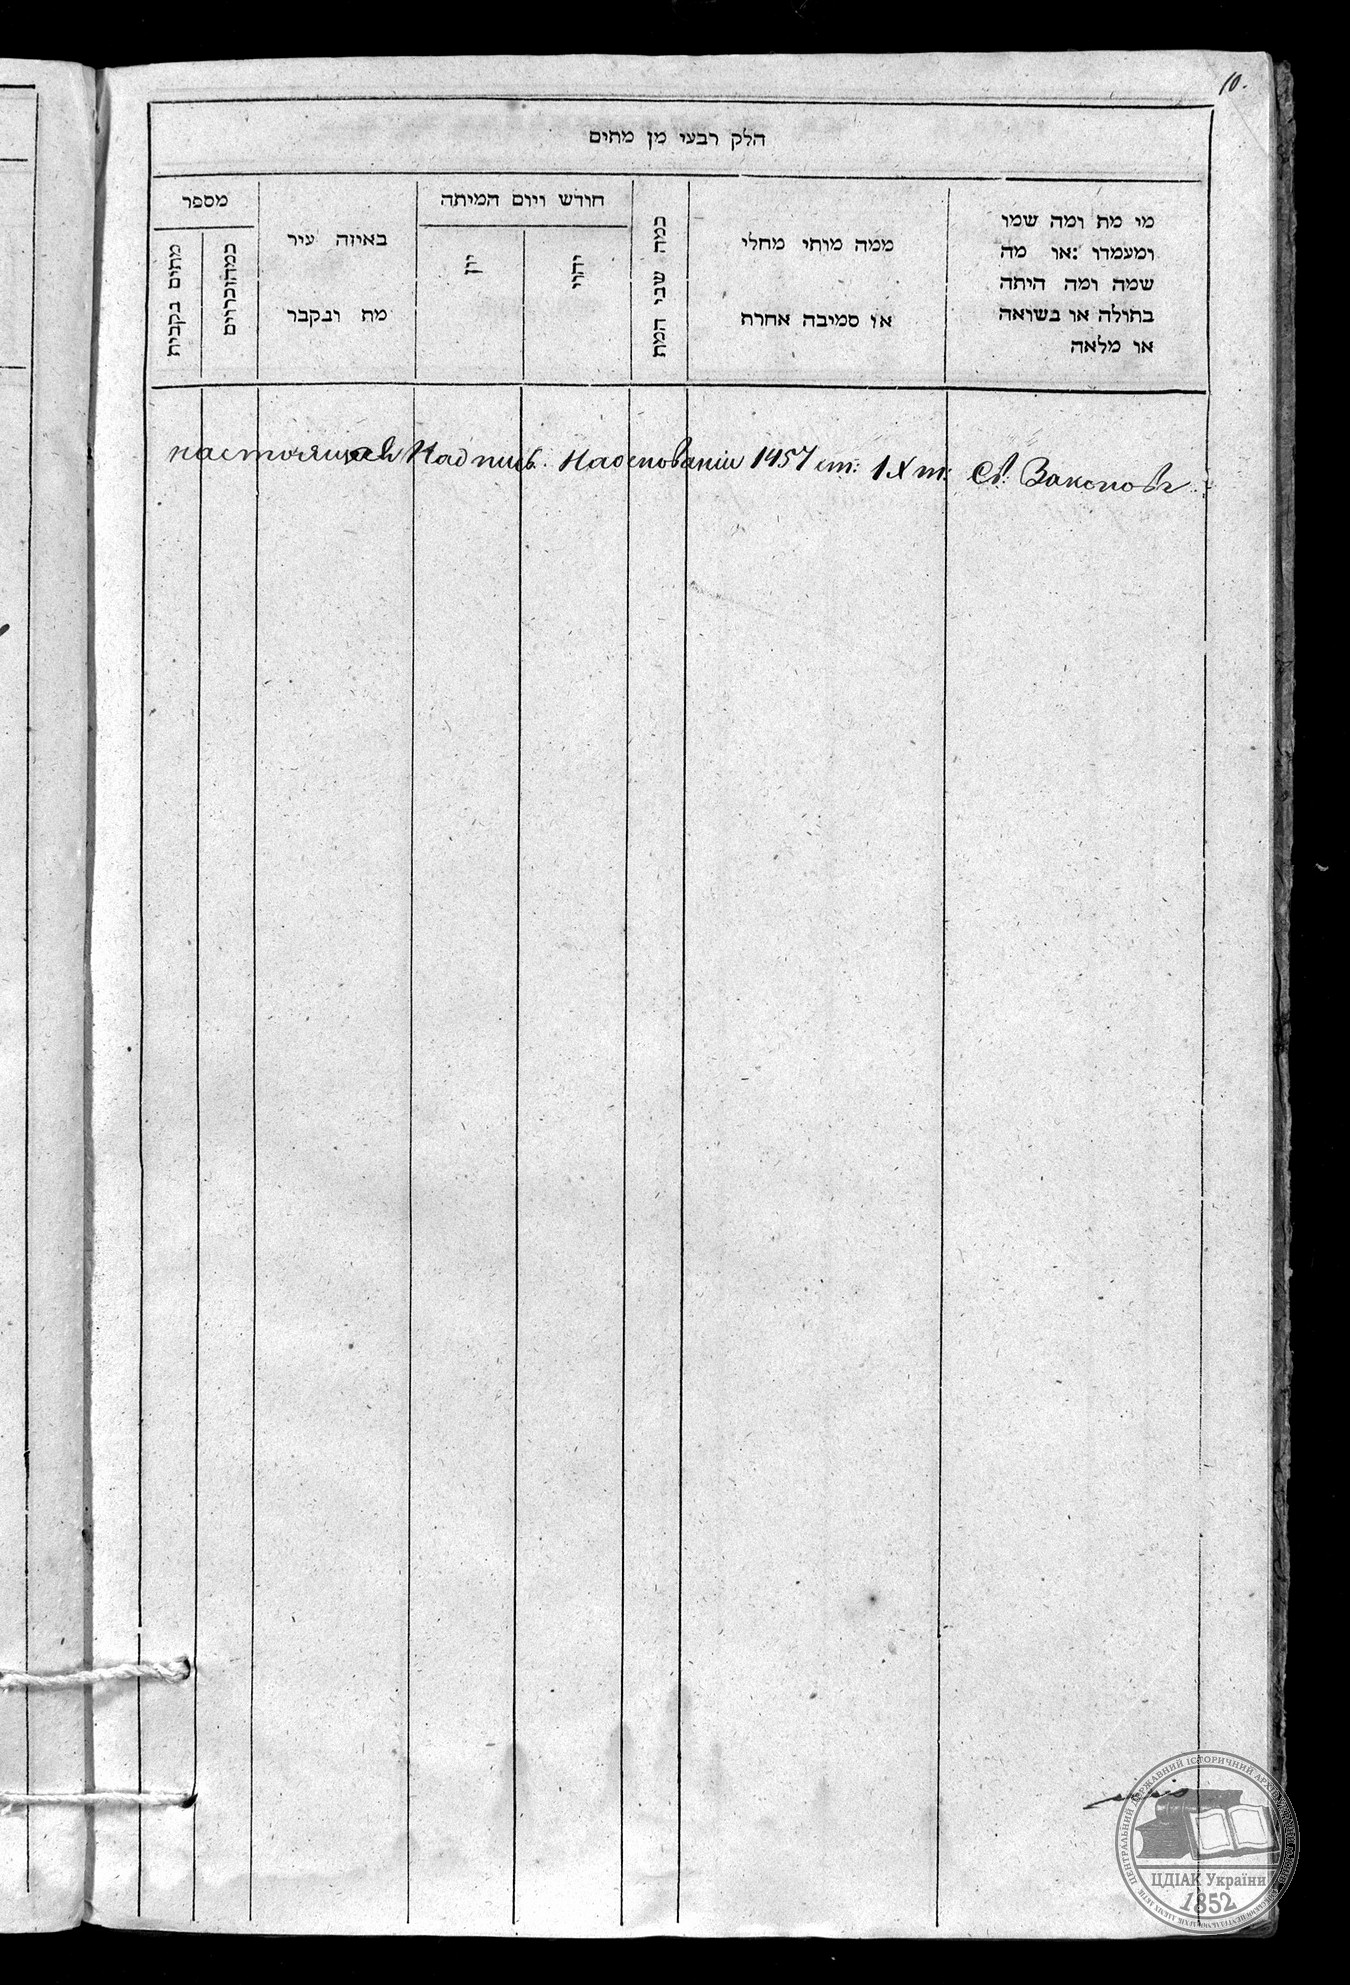 10.
הלק רבעי מן מתים
מי מת ומה שמו
ומעמדו :או מה
שמה ומה היתה
בתולה או בשואה
או מלאה
ממה מותי מחלי
או סמיבה אחרת
כמה שבי המת
חודש ויום המיתה
יהוי
יון
באיזה עיר
מת ובקבר
מספר
כמהזכרוים
מתים בקבית
настоящая Надпись. Наосновании 1457 ст: IX т: Св. Законовъ
ЦЕНТРАЛЬНИЙ ДЕРЖАВНИЙ ІСТОРИЧНИЙ АРХІВ УКРАЇНИ
ЦДІАК України
1852